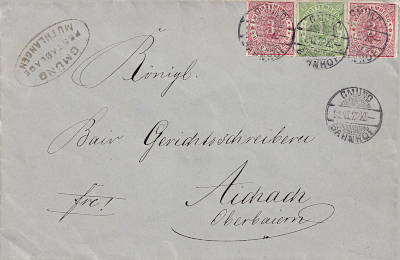 GMÜND
POSTABLAGE
MUTHLANGEN
GMÜND
BAHNHOF
GMÜND
BAHNHOF
Königl.
Bair. Gerichtsschreiberei
fre!
Aichach
Oberbaiern